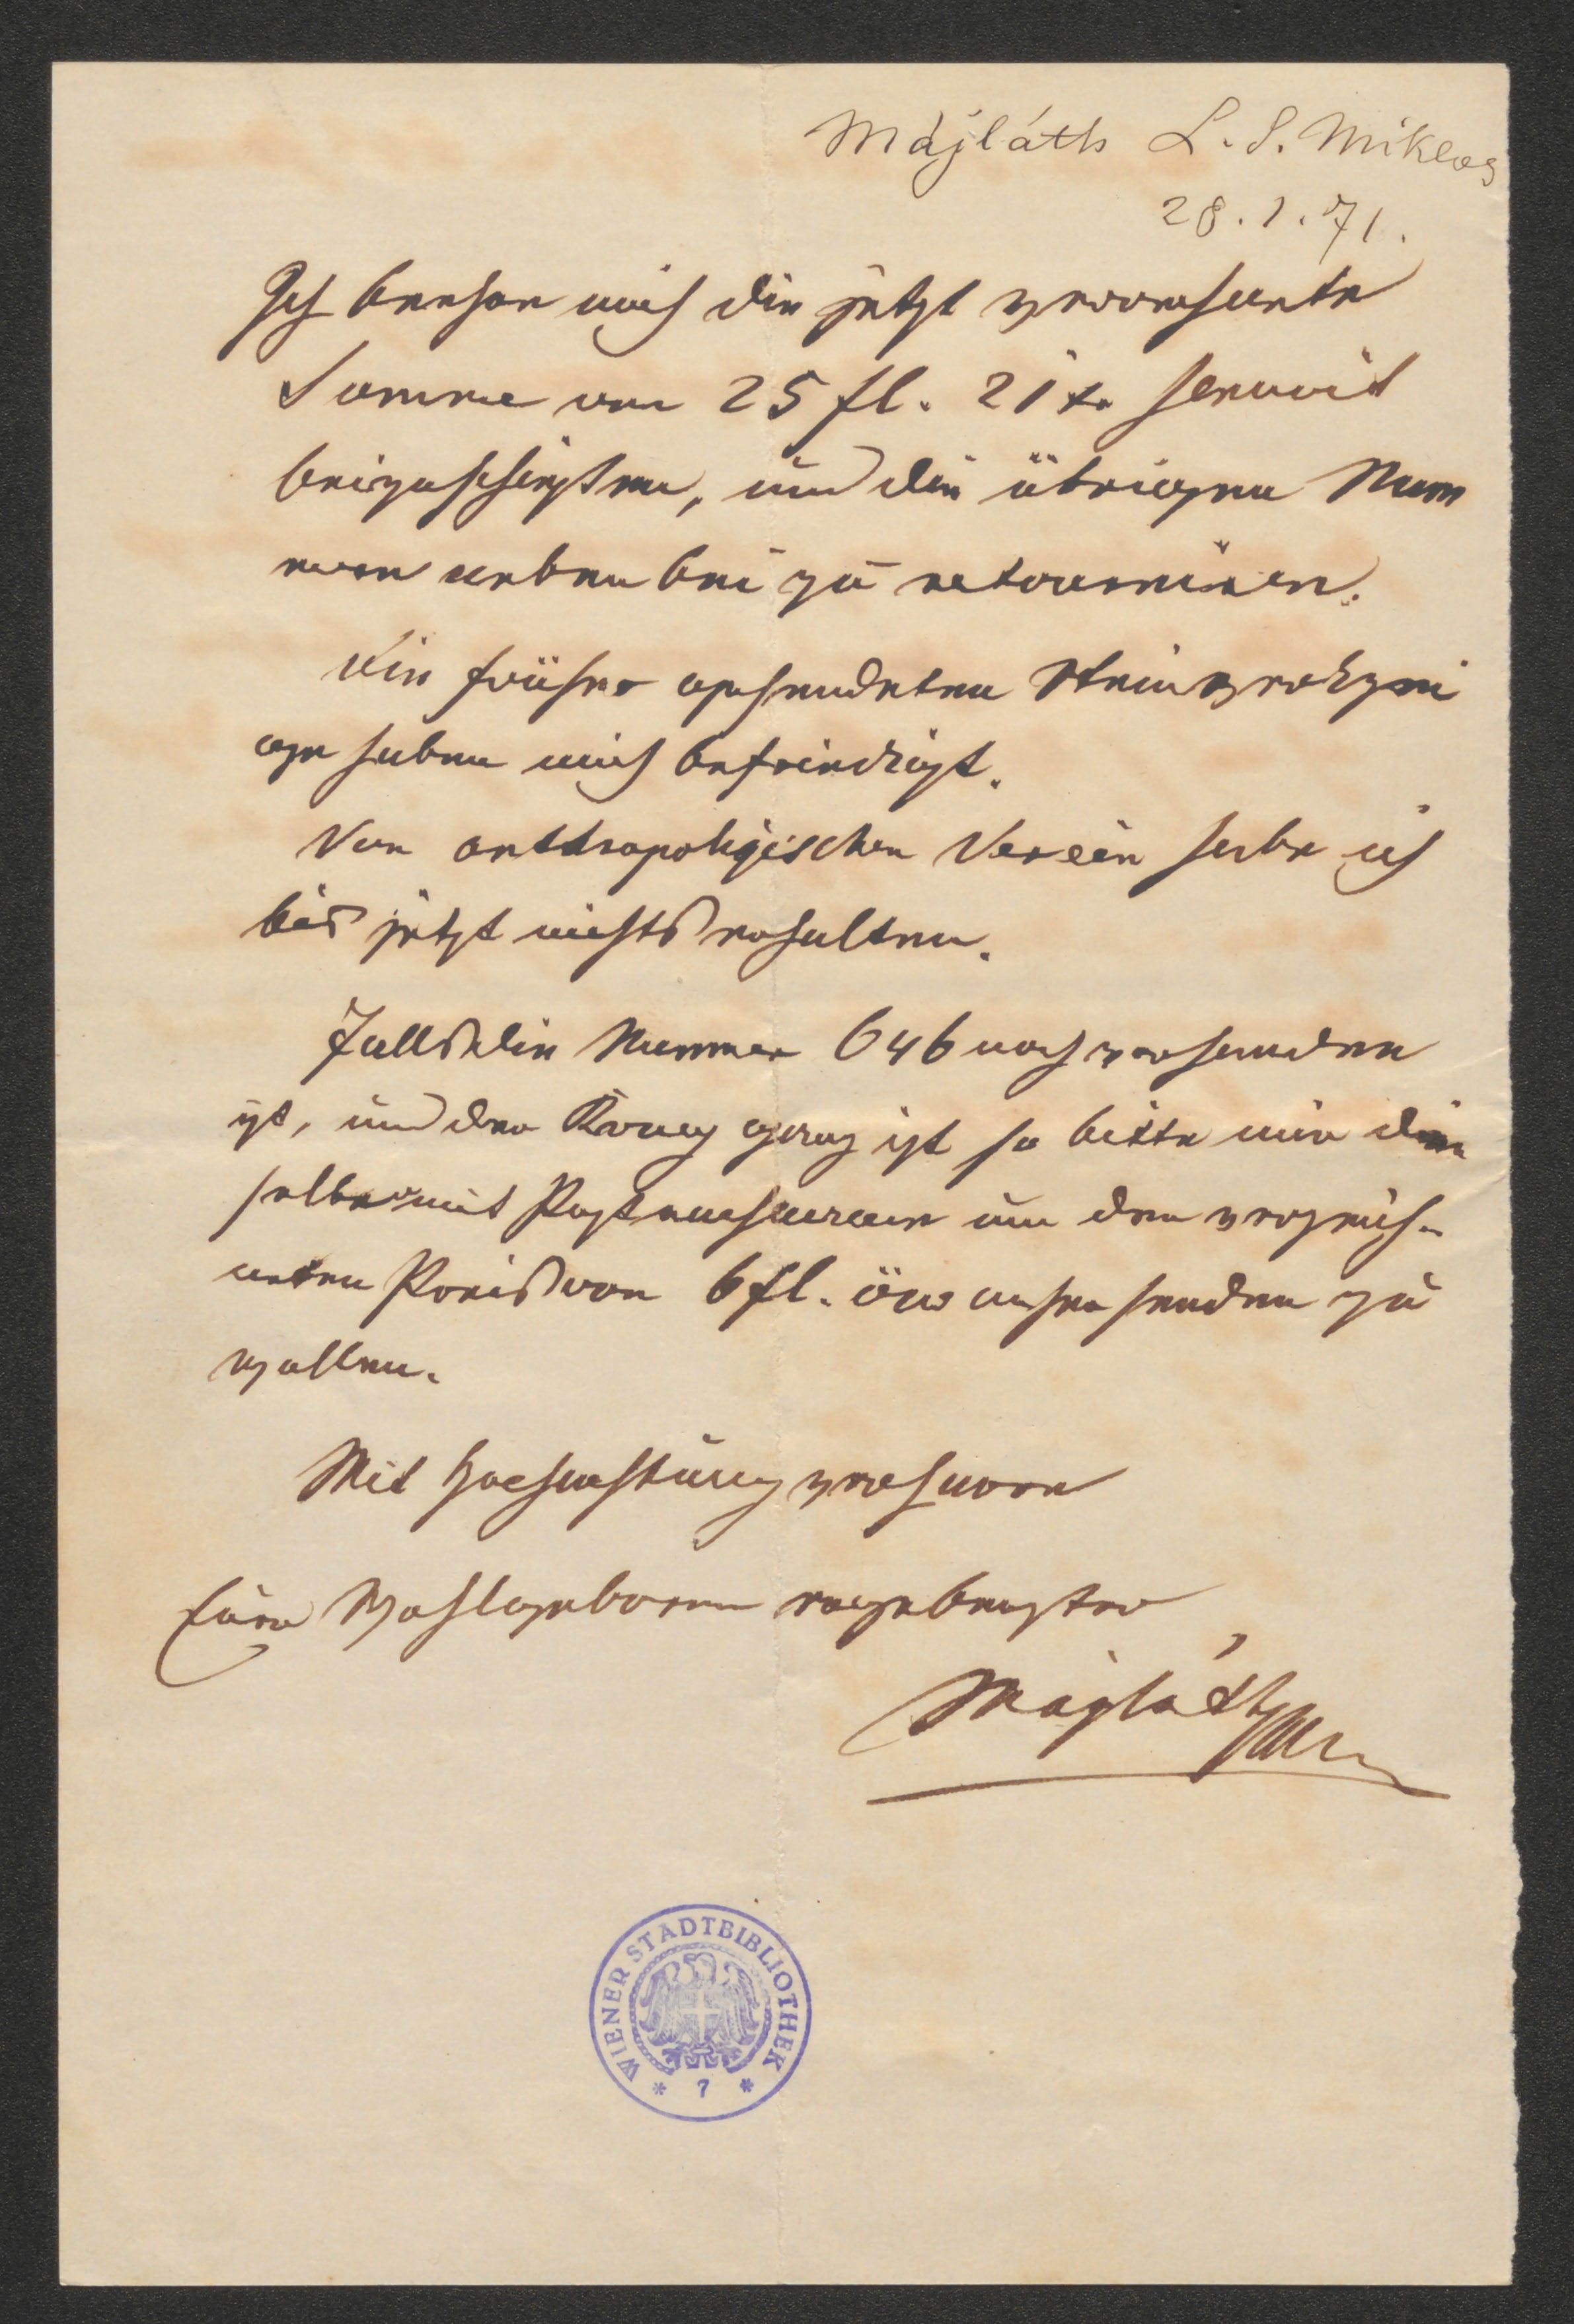 Májláth L. S. Miklos
28.1.71.
Ich beehre mich die jetzt
Summe von 25 fl. 21 x. hiermit
beizuschließen, und die übrigen Num
mern neben bei zu retourniren.
Die früher gesendeten Steinwerkzeu
ge haben mich befriedigt.
Von anthropoligischen Verein habe ich
bis jetzt nichts erhalten.
Falls die Nummer 646 noch vorhanden
ist, und der Krug ganz ist so bitte mir die
selbe mit Postnachnahme um den
Preis von 6 fl. öw senden zu
wollen.
Mit Hochachtung verharre
Euer Wohlgeboren ergebenster
Májláth
WIENER STADTBIBLIOTHEK
* 7 *